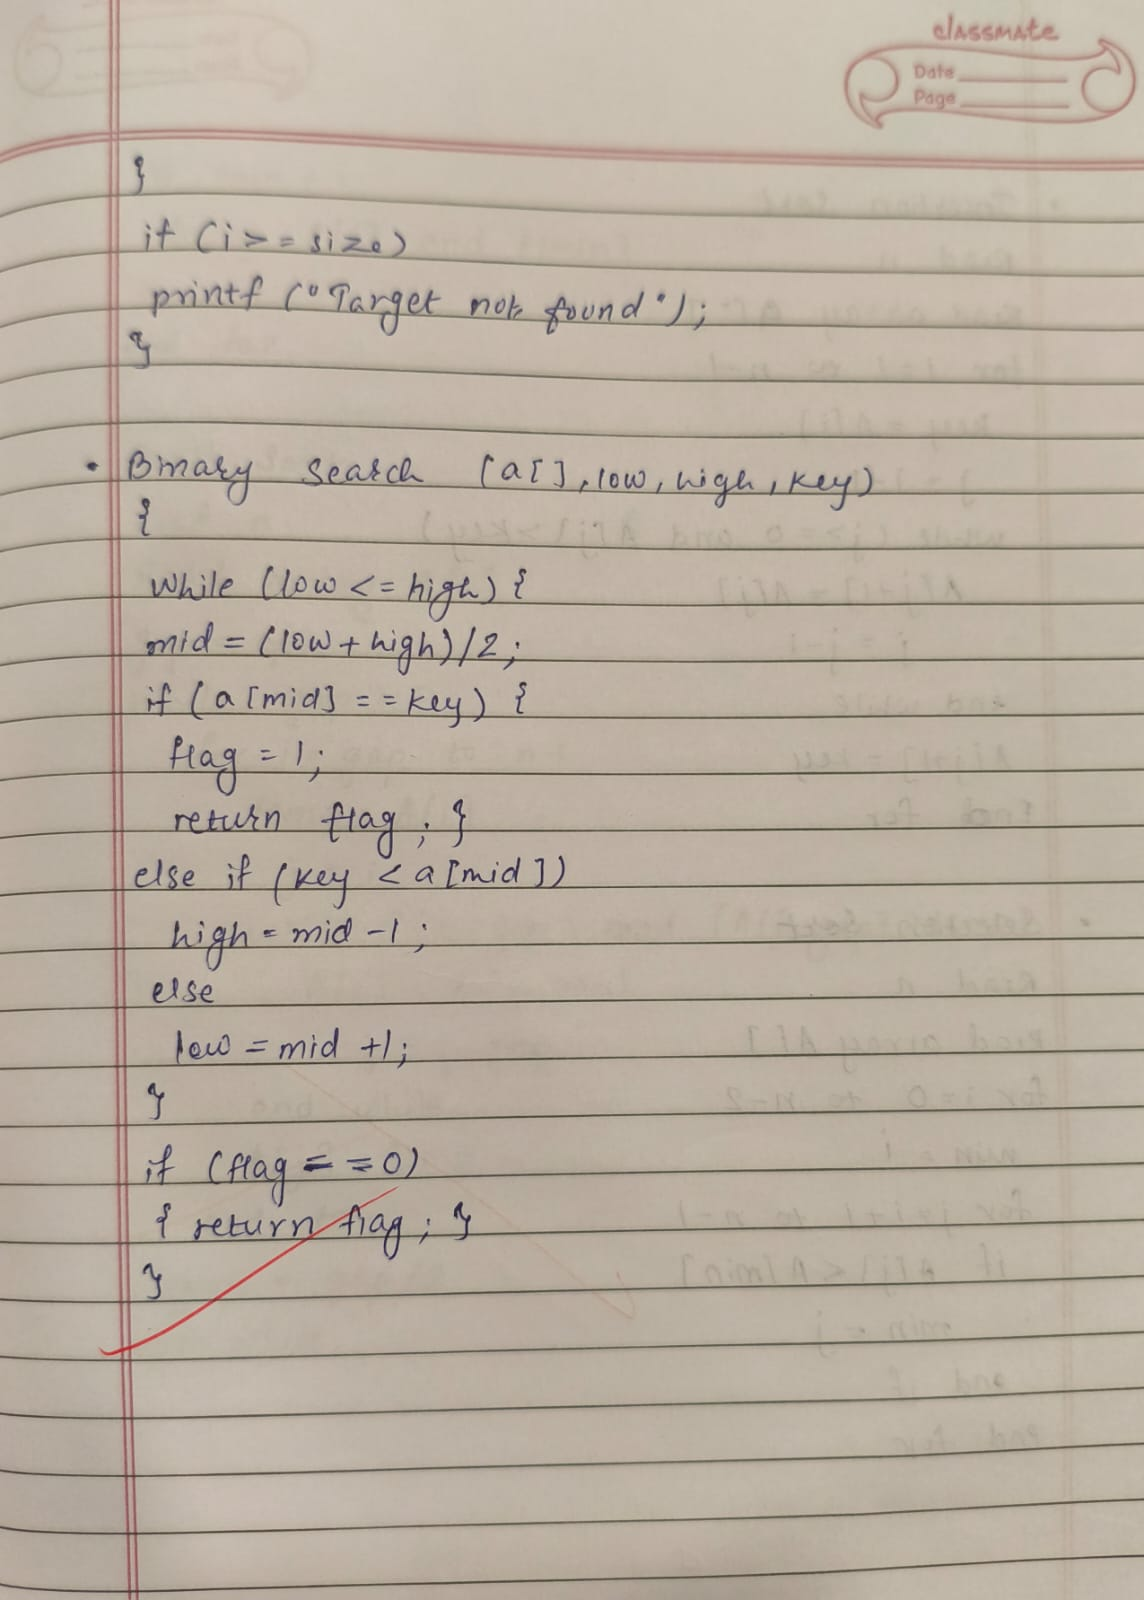 classmate
Date
Page
}
if (i >= size)
printf ("Target not found");
}
• Binary Search (a[], low, high, key)
{
while (low <= high) {
mid = (low + high)/2;
if (a[mid] == key) {
flag = 1;
return flag; }
else if (key < a[mid])
high = mid - 1;
else
low = mid + 1;
}
if (flag == 0)
{ return flag; }
}